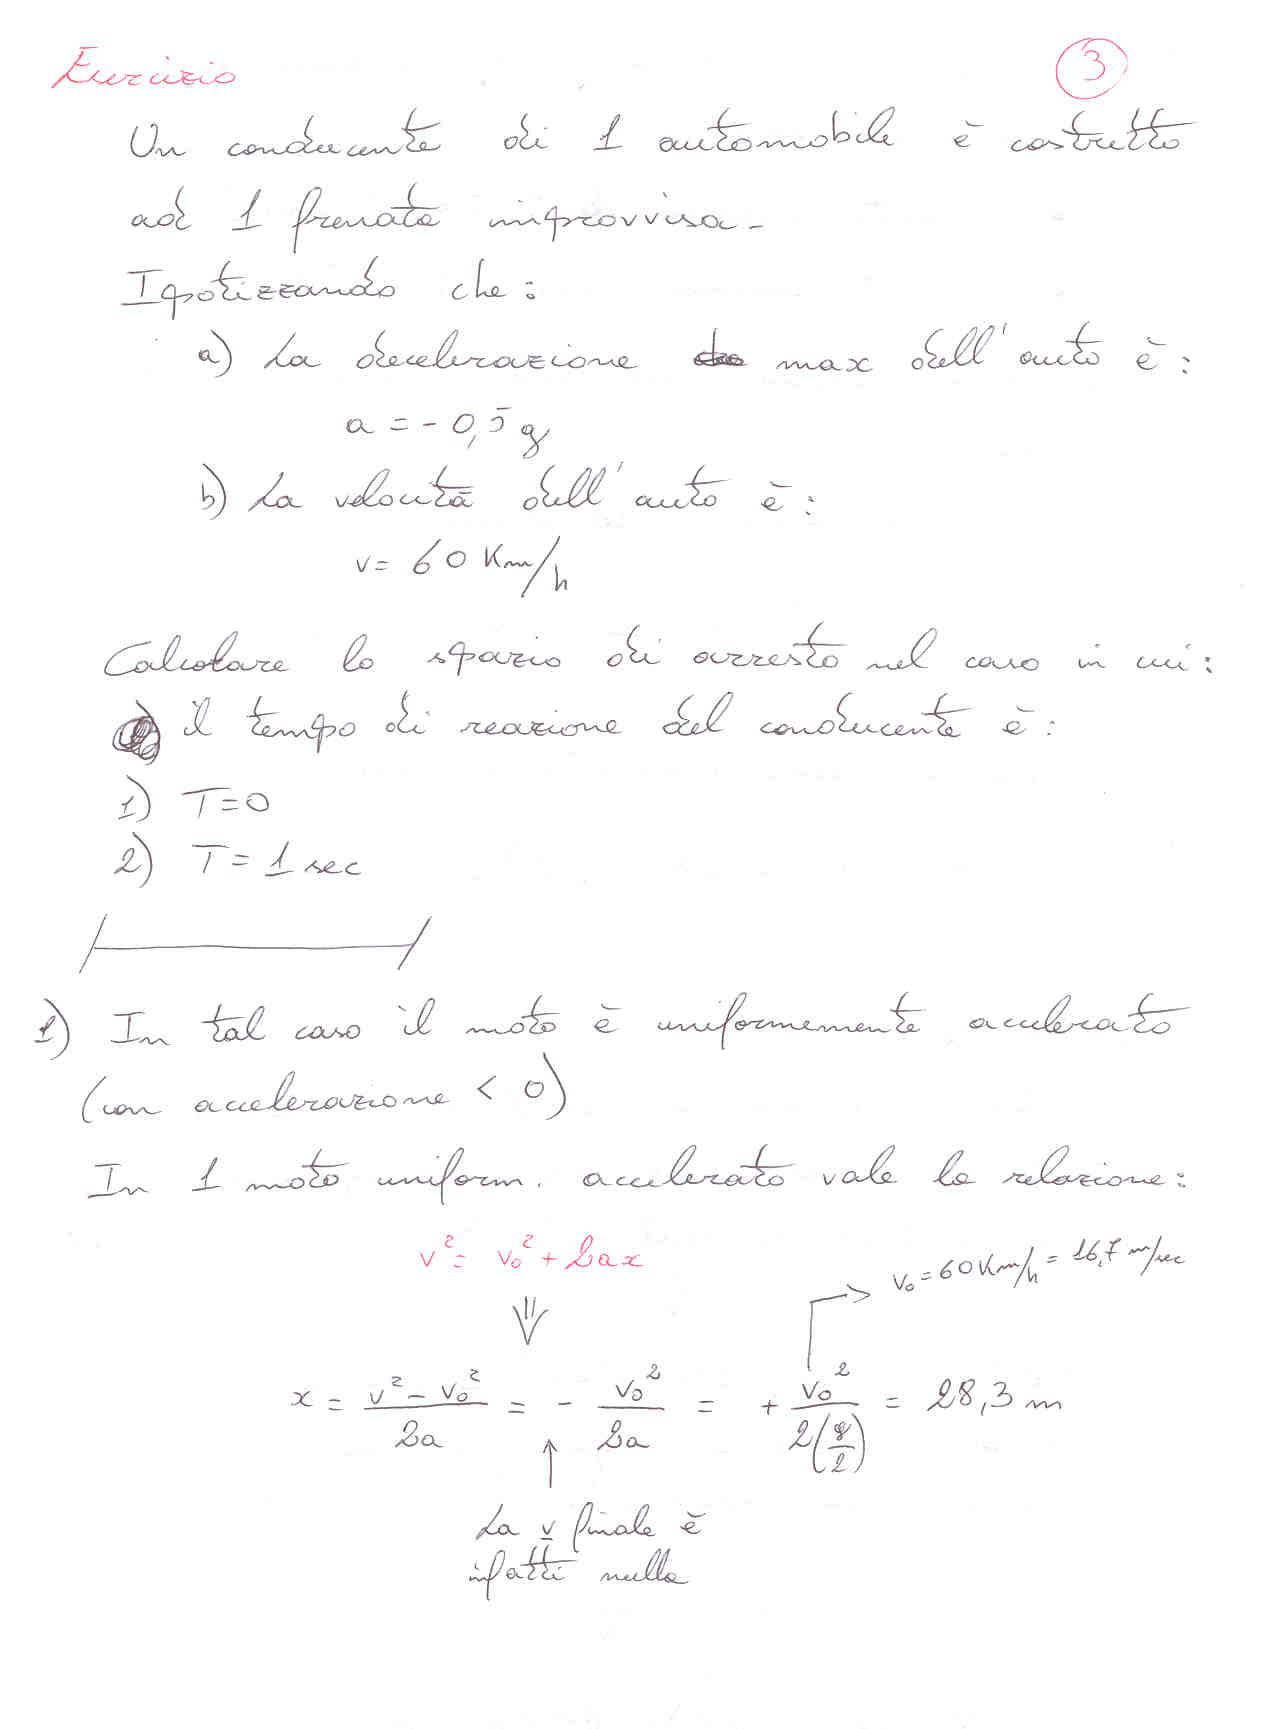 Esercizio
3
Un conducente di 1 automobile è costretto
ad 1 frenata improvvisa -
Ipotizzando che :
a) La decelerazione max dell'auto è :
a = - 0,5 g
b) La velocità dell'auto è :
v = 60 Km/h
Calcolare lo spazio di arresto nel caso in cui :
il tempo di reazione del conducente è :
1) T = 0
2) T = 1 sec
1) In tal caso il moto è uniformemente accelerato
(con accelerazione < 0)
In 1 moto uniform. accelerato vale la relazione :
v² = v₀² + 2ax
v₀ = 60 Km/h = 16,7 m/sec
x = (v² - v₀²)/2a = - v₀²/2a = + v₀²/2(g/2) = 28,3 m
La v finale è
infatti nulla